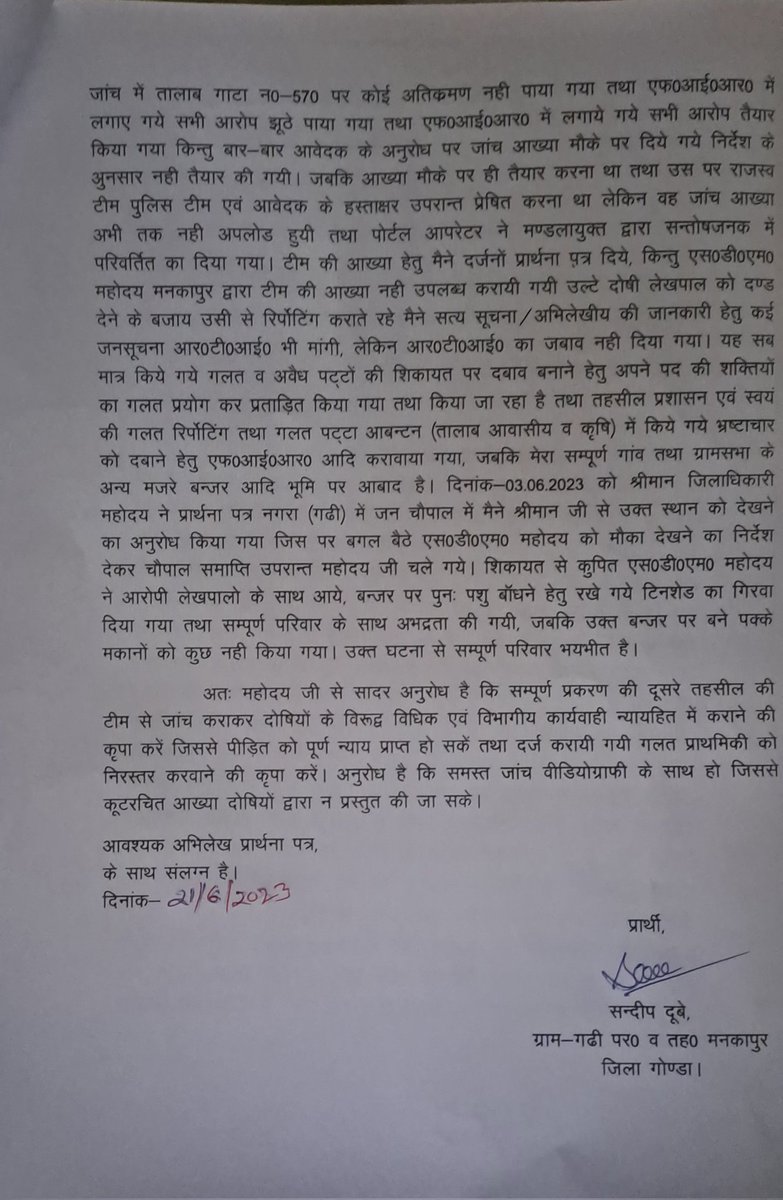 जांच में तालाब गाटा न0–570 पर कोई अतिक्रमण नही पाया गया तथा एफ0आई0आर0 में
लगाए गये सभी आरोप झूठे पाया गया तथा एफ0आई0आर0 में लगाये गये सभी आरोप तैयार
किया गया किन्तु बार–बार आवेदक के अनुरोध पर जांच आख्या मौके पर दिये गये निर्देश के
अुनसार नही तैयार की गयी। जबकि आख्या मौके पर ही तैयार करना था तथा उस पर राजस्व
टीम पुलिस टीम एवं आवेदक के हस्ताक्षर उपरान्त प्रेषित करना था लेकिन वह जांच आख्या
अभी तक नही अपलोड हुयी तथा पोर्टल आपरेटर ने मण्डलायुक्त द्वारा सन्तोषजनक में
परिवर्तित का दिया गया। टीम की आख्या हेतु मैने दर्जनों प्रार्थना प़त्र दिये, किन्तु एस0डी0एम0
महोदय मनकापुर द्वारा टीम की आख्या नही उपलब्ध करायी गयी उल्टे दोषी लेखपाल को दण्ड
देने के बजाय उसी से रिर्पोटिंग कराते रहे मैने सत्य सूचना/अभिलेखीय की जानकारी हेतु कई
जनसूचना आर0टी0आई0 भी मांगी, लेकिन आर0टी0आई0 का जबाव नही दिया गया। यह सब
मात्र किये गये गलत व अवैध पट्टों की शिकायत पर दबाव बनाने हेतु अपने पद की शक्तियों
का गलत प्रयोग कर प्रताड़ित किया गया तथा किया जा रहा है तथा तहसील प्रशासन एवं स्वयं
की गलत रिर्पोटिंग तथा गलत पट्टा आबन्टन (तालाब आवासीय व कृषि) में किये गये भ्रष्टाचार
को दबाने हेतु एफ0आई0आर0 आदि करावाया गया, जबकि मेरा सम्पूर्ण गांव तथा ग्रामसभा के
अन्य मजरे बन्जर आदि भूमि पर आबाद है। दिनांक–03.06.2023 को श्रीमान जिलाधिकारी
महोदय ने प्रार्थना पत्र नगरा (गढी) में जन चौपाल में मैने श्रीमान जी से उक्त स्थान को देखने
का अनुरोध किया गया जिस पर बगल बैठे एस0डी0एम0 महोदय को मौका देखने का निर्देश
देकर चौपाल समाप्ति उपरान्त महोदय जी चले गये। शिकायत से कुपित एस0डी0एम0 महोदय
ने आरोपी लेखपालो के साथ आये, बन्जर पर पुनः पशु बॉधने हेतु रखे गये टिनशेड का गिरवा
दिया गया तथा सम्पूर्ण परिवार के साथ अभद्रता की गयी, जबकि उक्त बन्जर पर बने पक्के
मकानों को कुछ नही किया गया। उक्त घटना से सम्पूर्ण परिवार भयभीत है।
अतः महोदय जी से सादर अनुरोध है कि सम्पूर्ण प्रकरण की दूसरे तहसील की
टीम से जांच कराकर दोषियों के विरूद्व विधिक एवं विभागीय कार्यवाही न्यायहित में कराने की
कृपा करें जिससे पीड़ित को पूर्ण न्याय प्राप्त हो सकें तथा दर्ज करायी गयी गलत प्राथमिकी को
निरस्तर करवाने की कृपा करें। अनुरोध है कि समस्त जांच वीडियोग्राफी के साथ हो जिससे
कूटरचित आख्या दोषियों द्वारा न प्रस्तुत की जा सके।
आवश्यक अभिलेख प्रार्थना पत्र,
के साथ संलग्न है।
दिनांक– 21/6/2023
प्रार्थी,
सन्दीप दूबे,
ग्राम–गढी पर0 व तह0 मनकापुर
जिला गोण्डा।